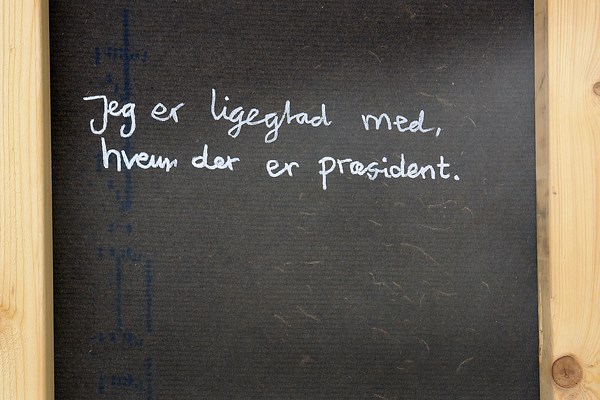 Jeg er ligeglad med,
hvem der er præsident.